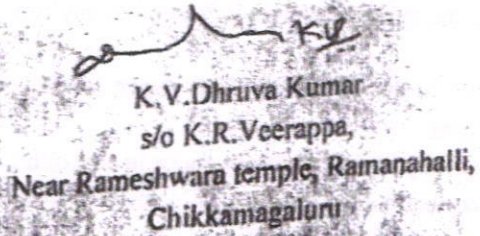 K.V.Dhruva Kumar
s/o K.R.Veerappa,
Near Rameshwara temple, Ramanahalli,
Chikkamagaluru